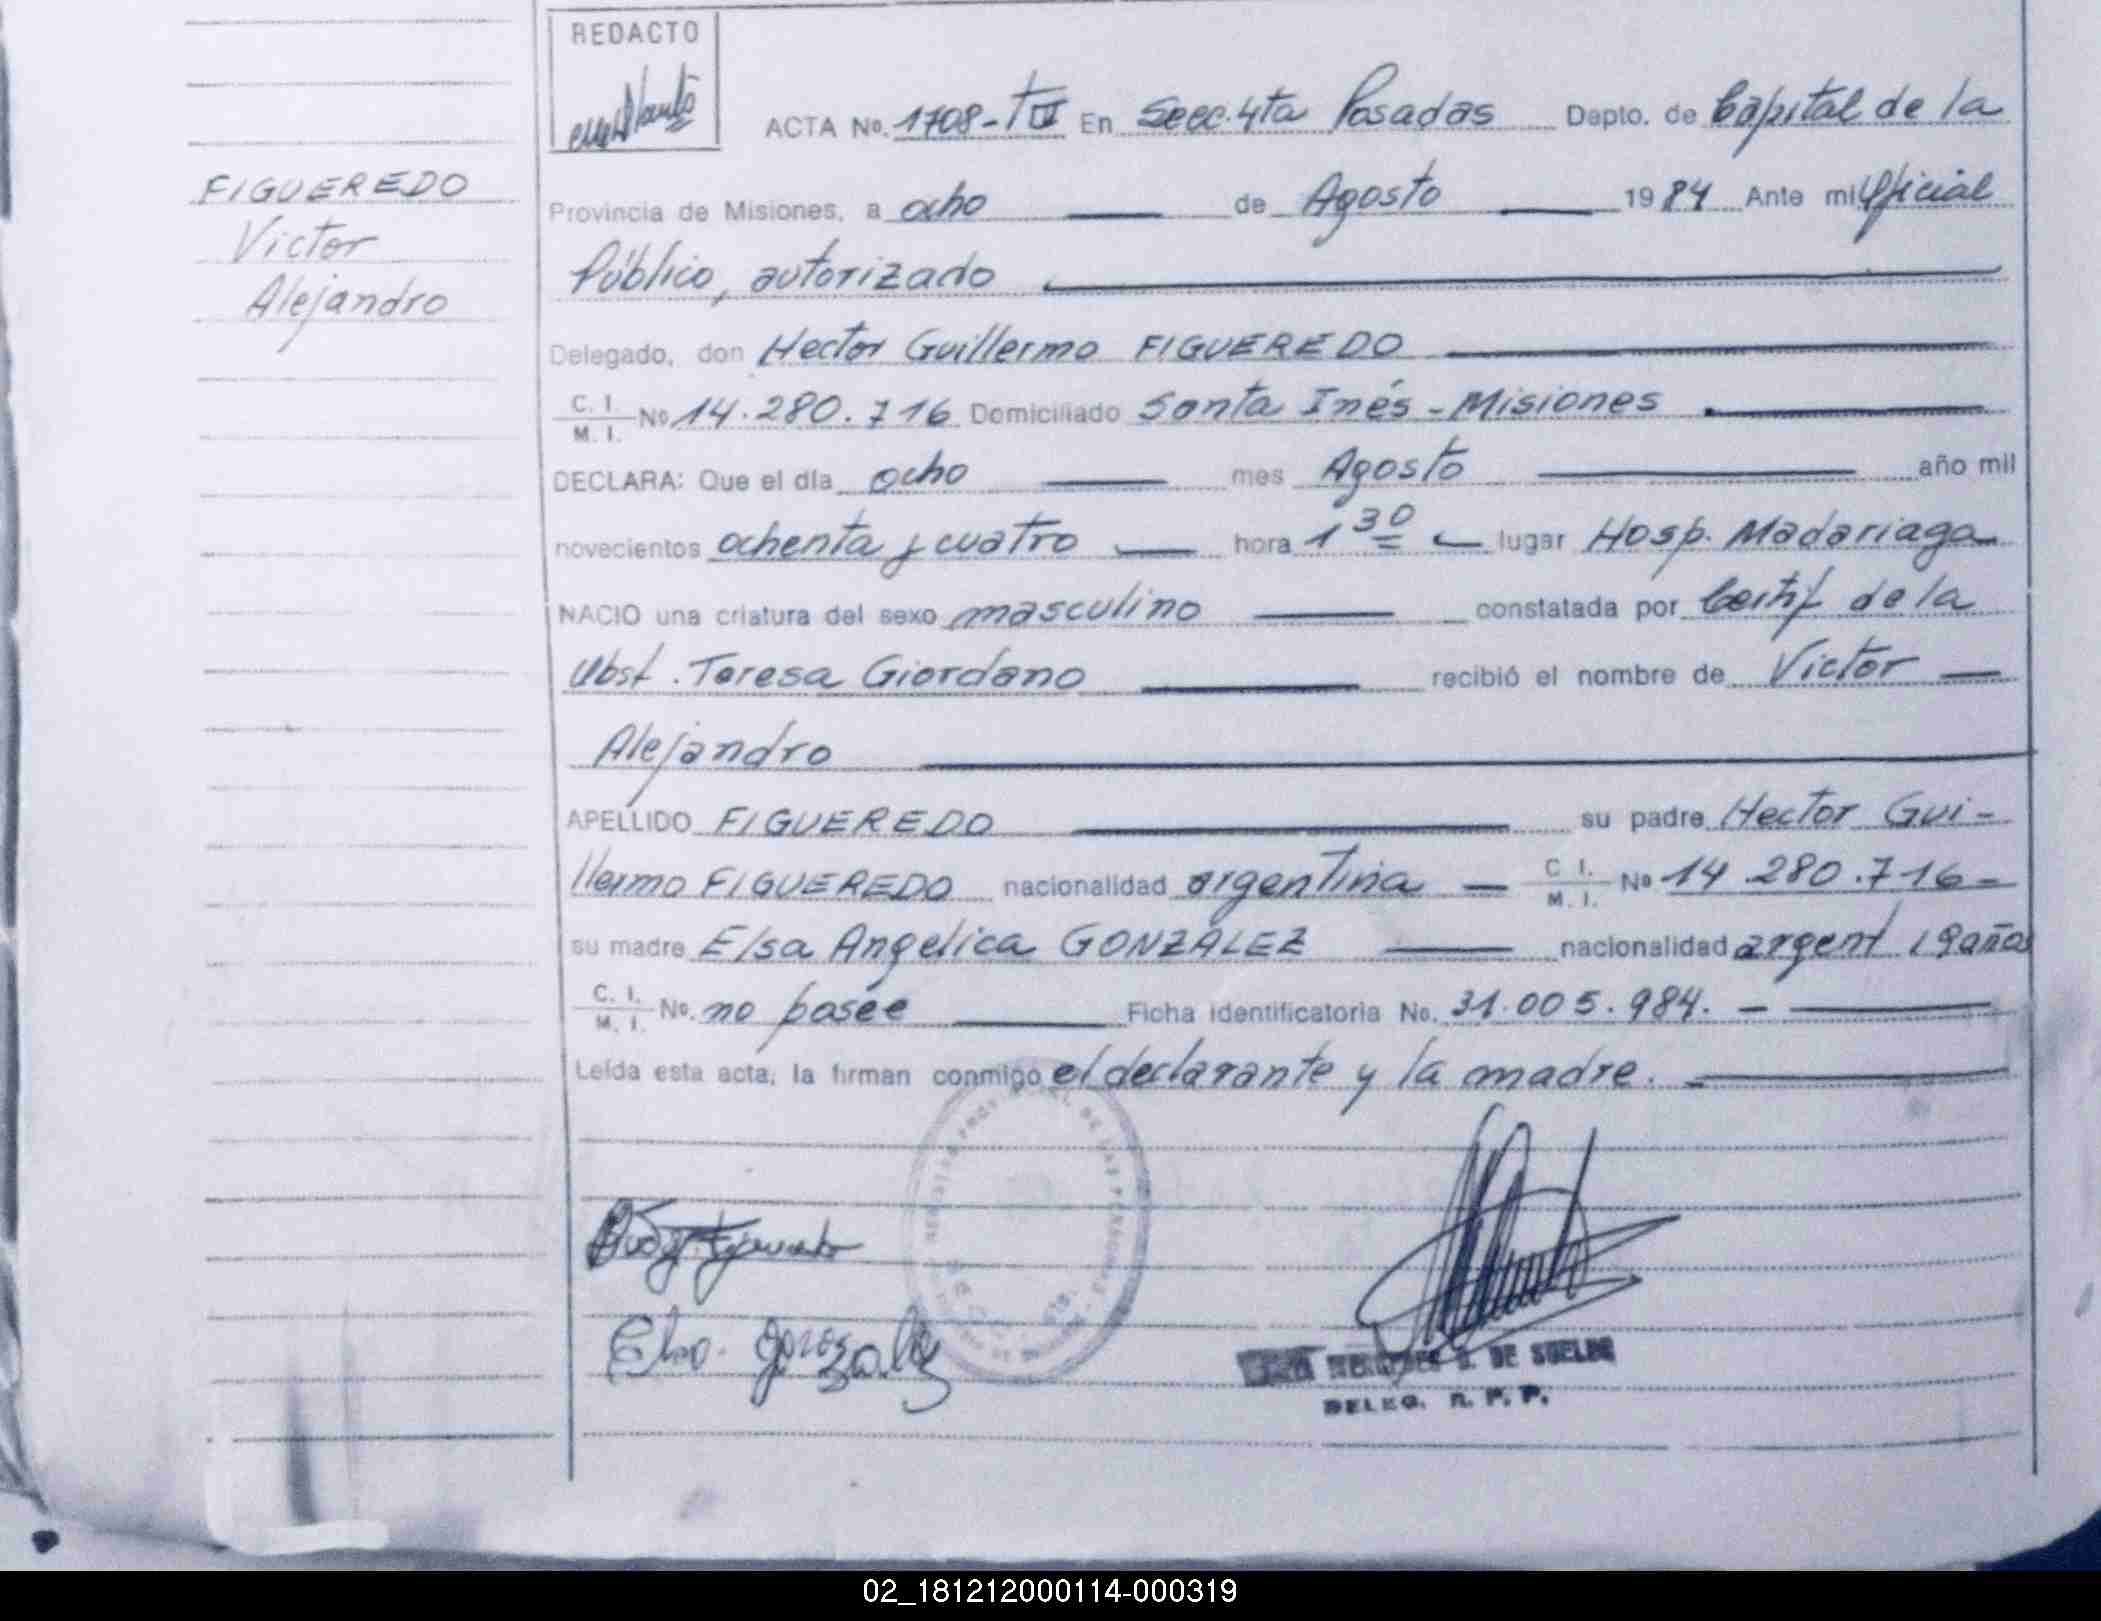 REDACTO
ACTA No. 1708-TIII En Secc. 4ta Posadas Depto. de Capital de la
FIGUEREDO
Victor
Alejandro
Provincia de Misiones, a ocho de Agosto 1984 Ante mi Oficial
Público, autorizado
Delegado, don Hector Guillermo FIGUEREDO
C. I. M. I. No 14.280.716 Domiciliado Santa Inés - Misiones
DECLARA: Que el día ocho mes Agosto año mil
novecientos ochenta y cuatro hora 1 30 lugar Hosp. Madariaga
NACIO una criatura del sexo masculino constatada por Certif de la
Obst. Teresa Giordano recibió el nombre de Victor
Alejandro
APELLIDO FIGUEREDO su padre Hector Gui-
llermo FIGUEREDO nacionalidad argentina C I. M. I. No 14 280.716-
su madre Elsa Angelica GONZÁLEZ nacionalidad argent 19 años
C. I. M. I. No. no posée Ficha identificatoria No. 31.005.984. -
Leída esta acta, la firman conmigo el declarante y la madre.
Elsa Gonzalez
DE SUELDO
DELEG. R. P. P.
02_181212000114-000319